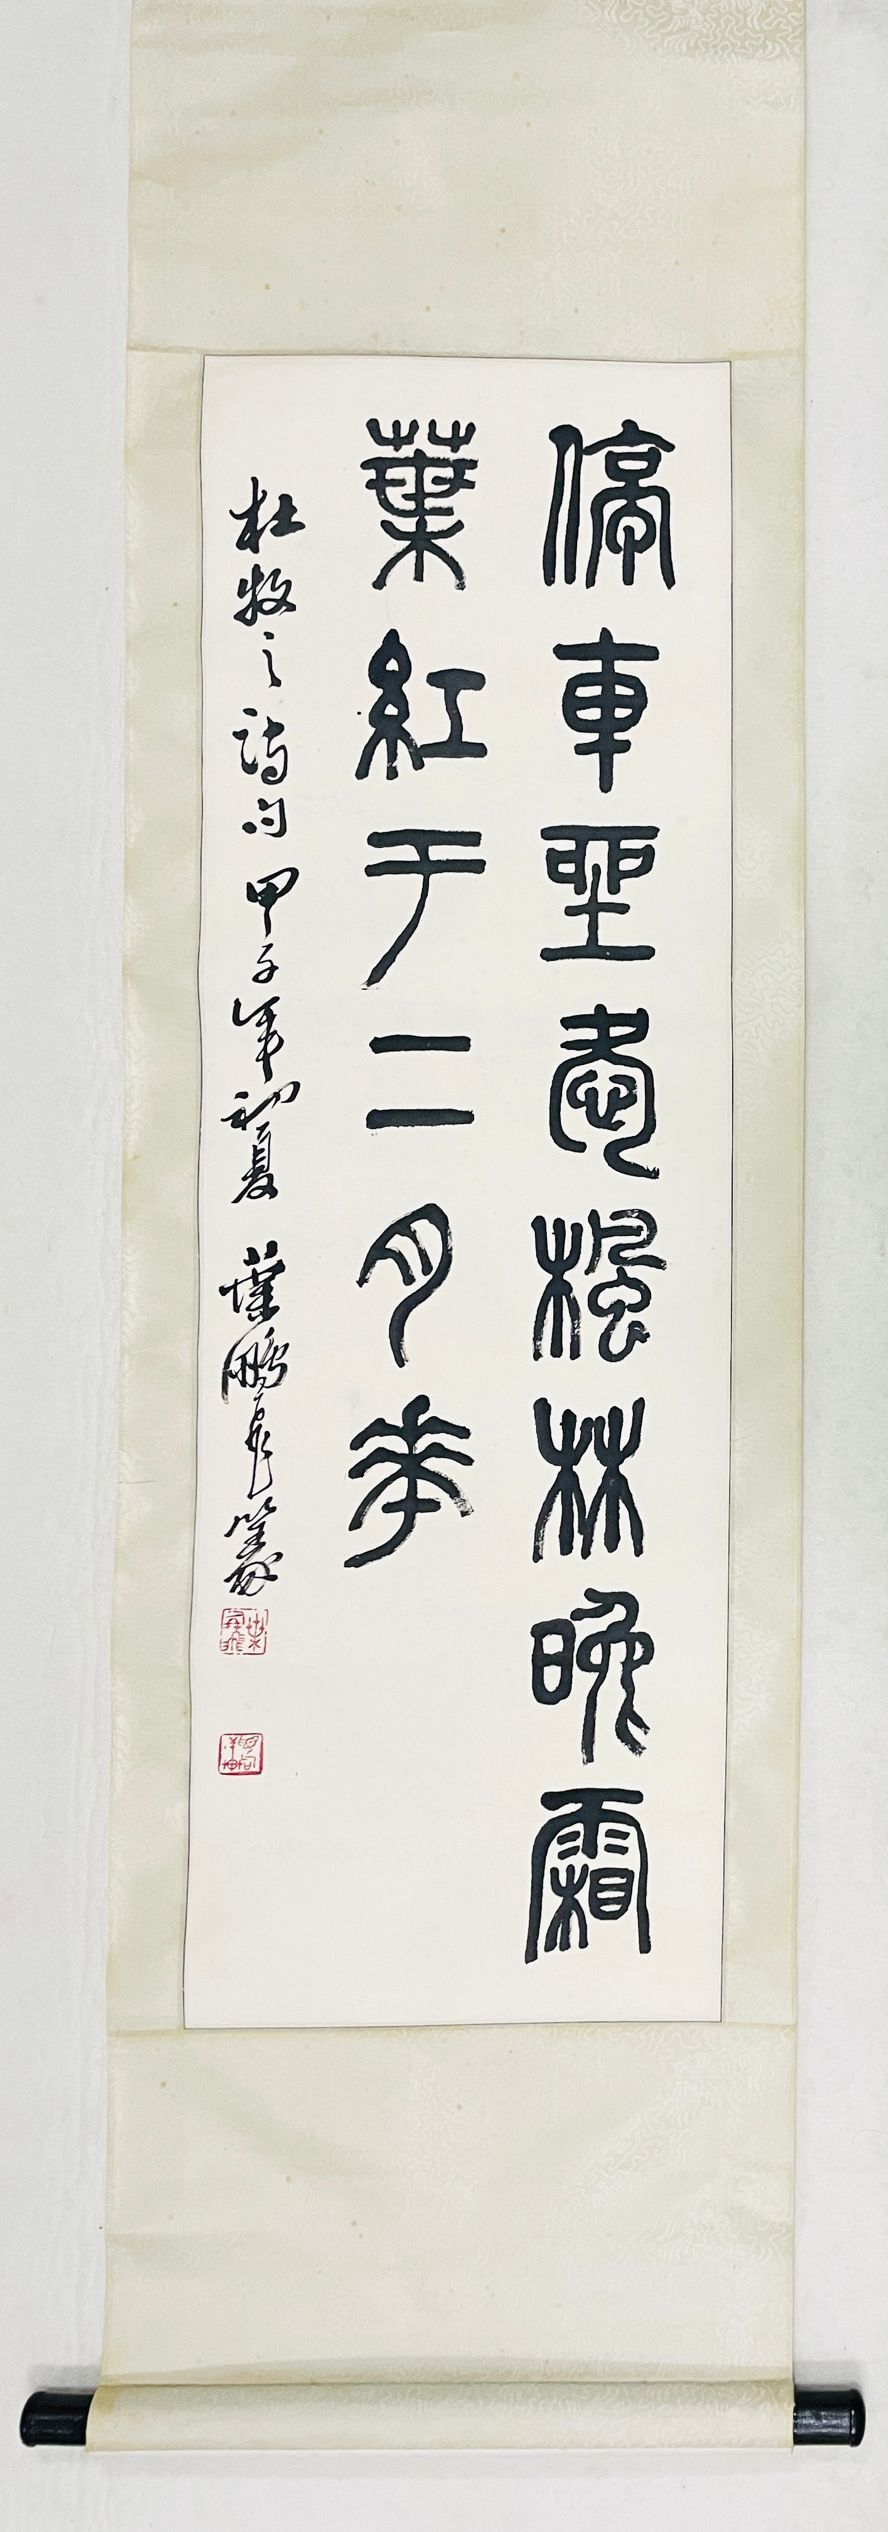 停車坐愛楓林晚霜
葉紅于二月華
杜牧之詩句 甲子年初夏 葉鵬飛篆